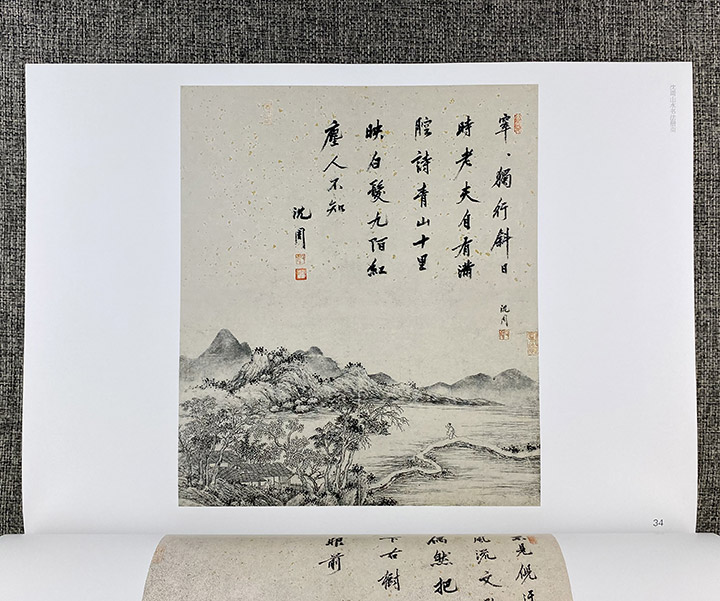 寧、獨行斜日
時老夫自有滿
腔詩青山十里
映白髮九陌紅
塵人不知
沈周
沈周
34
不見倪迂
風流文
偶然把
下古樹
眼前